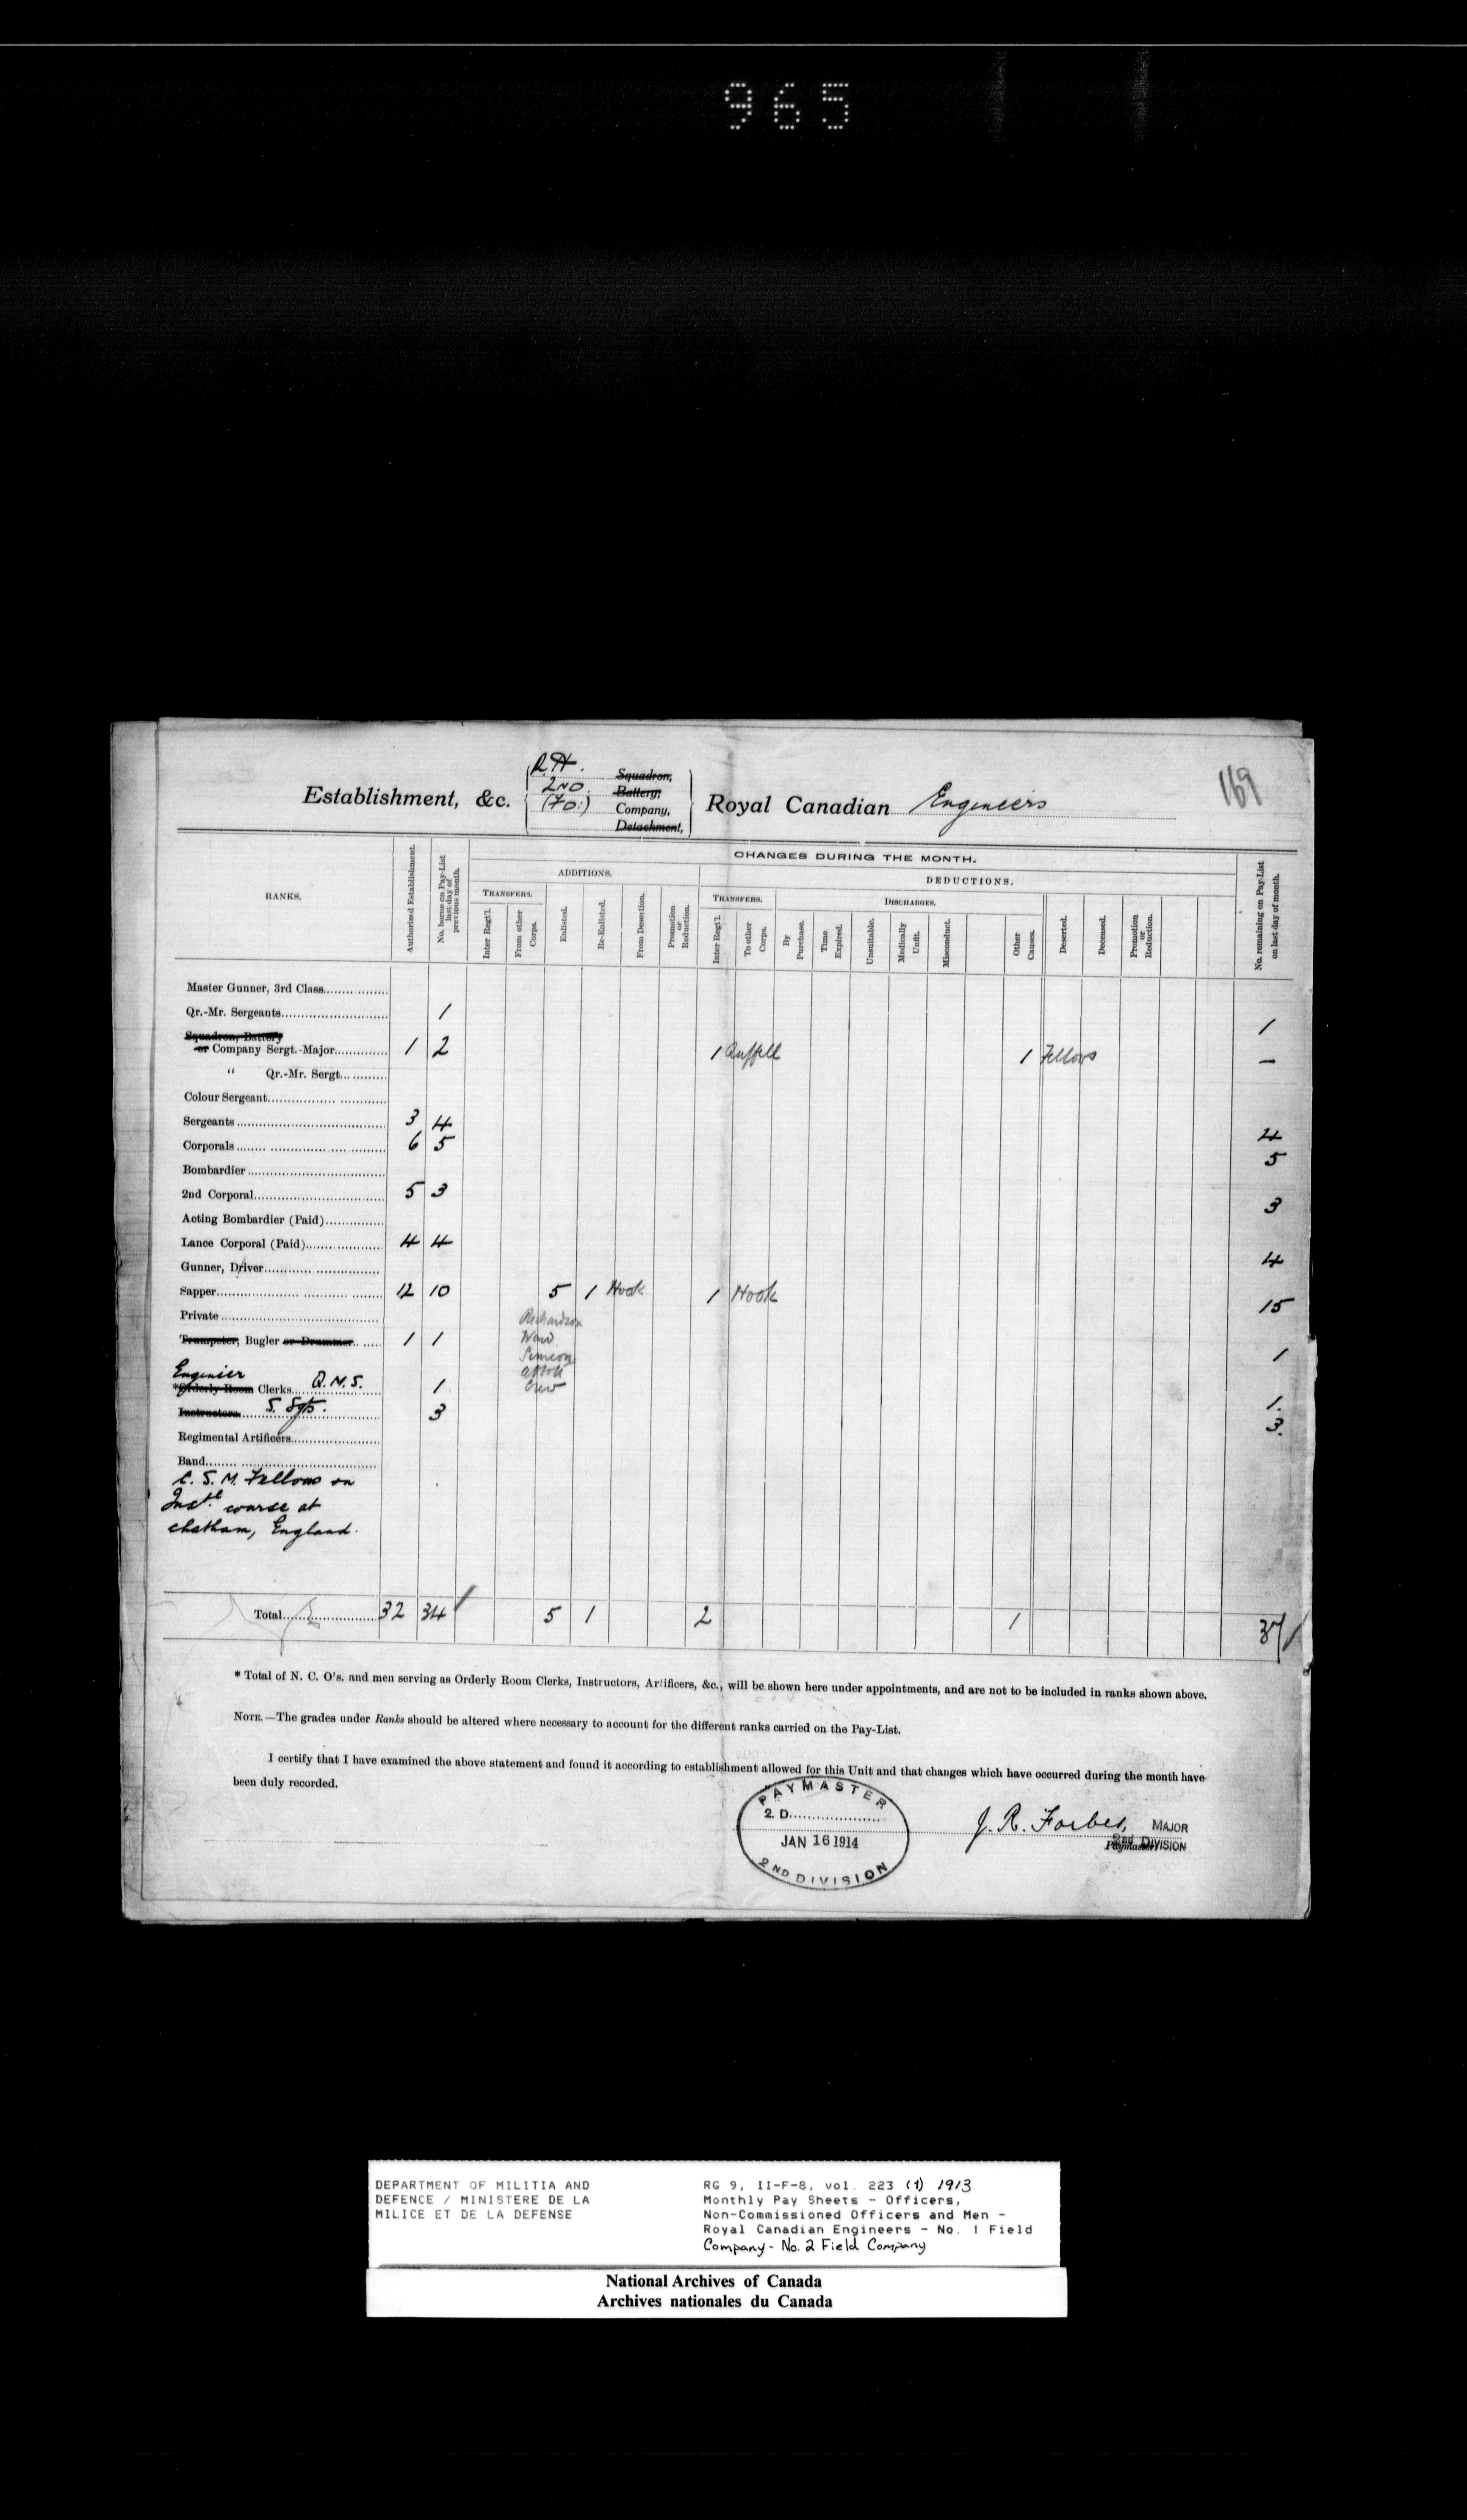 965
169
R.H. Squadron,
2ND. Battery,
Establishment, &c. (FD.) Company, Royal Canadian Engineers
Detachment,
RANKS.
Authorized Establishment.
No. borne on Pay-List last day of previous month.
CHANGES DURING THE MONTH.
ADDITIONS.
DEDUCTIONS.
TRANSFERS.
Inter Regt'l.
From other Corps.
Enlisted.
Re-Enlisted.
From Desertion.
Promotion or Reduction.
TRANSFERS.
Inter Regt'l.
To other Corps.
DISCHARGES.
By Purchase.
Time Expired.
Unsuitable.
Medically Unfit.
Misconduct.
Other Causes.
Deserted.
Deceased.
Promotion or Reduction.
No. remaining on Pay-List on last day of month.
Master Gunner, 3rd Class
Qr.-Mr. Sergeants 1 1
Squadron, Battery
or Company Sergt.-Major 1 2 1 1 Fellows —
" Qr.-Mr. Sergt.
Colour Sergeant
Sergeants 3 4 4
Corporals 6 5 5
Bombardier
2nd Corporal 5 3 3
Acting Bombardier (Paid)
Lance Corporal (Paid) 4 4 4
Gunner, Driver
Sapper 12 10 5 1 Hook 1 Hook 15
Private
Richardson
Trumpeter, Bugler or Drummer 1 1 Ward 1
Simeon
Engineer
*Orderly Room Clerks Q.M.S. 1 Crew 1.
Instructors S. Sgts. 3 3.
Regimental Artificers
Band
C. S. M. Fellows on
Inst'l course at
Chatham, England.
Total 32 34 5 1 2 1 37
* Total of N. C. O's. and men serving as Orderly Room Clerks, Instructors, Artificers, &c., will be shown here under appointments, and are not to be included in ranks shown above.
NOTE.—The grades under Ranks should be altered where necessary to account for the different ranks carried on the Pay-List.
I certify that I have examined the above statement and found it according to establishment allowed for this Unit and that changes which have occurred during the month have
been duly recorded.
PAYMASTER
2. D.
JAN 16 1914
2ND DIVISION
J. R. Forbes, MAJOR
Paymaster
2nd DIVISION
DEPARTMENT OF MILITIA AND
DEFENCE / MINISTERE DE LA
MILICE ET DE LA DEFENSE
RG 9, II-F-8, vol. 223 (1) 1913
Monthly Pay Sheets - Officers,
Non-Commissioned Officers and Men -
Royal Canadian Engineers - No. 1 Field
Company - No. 2 Field Company
National Archives of Canada
Archives nationales du Canada